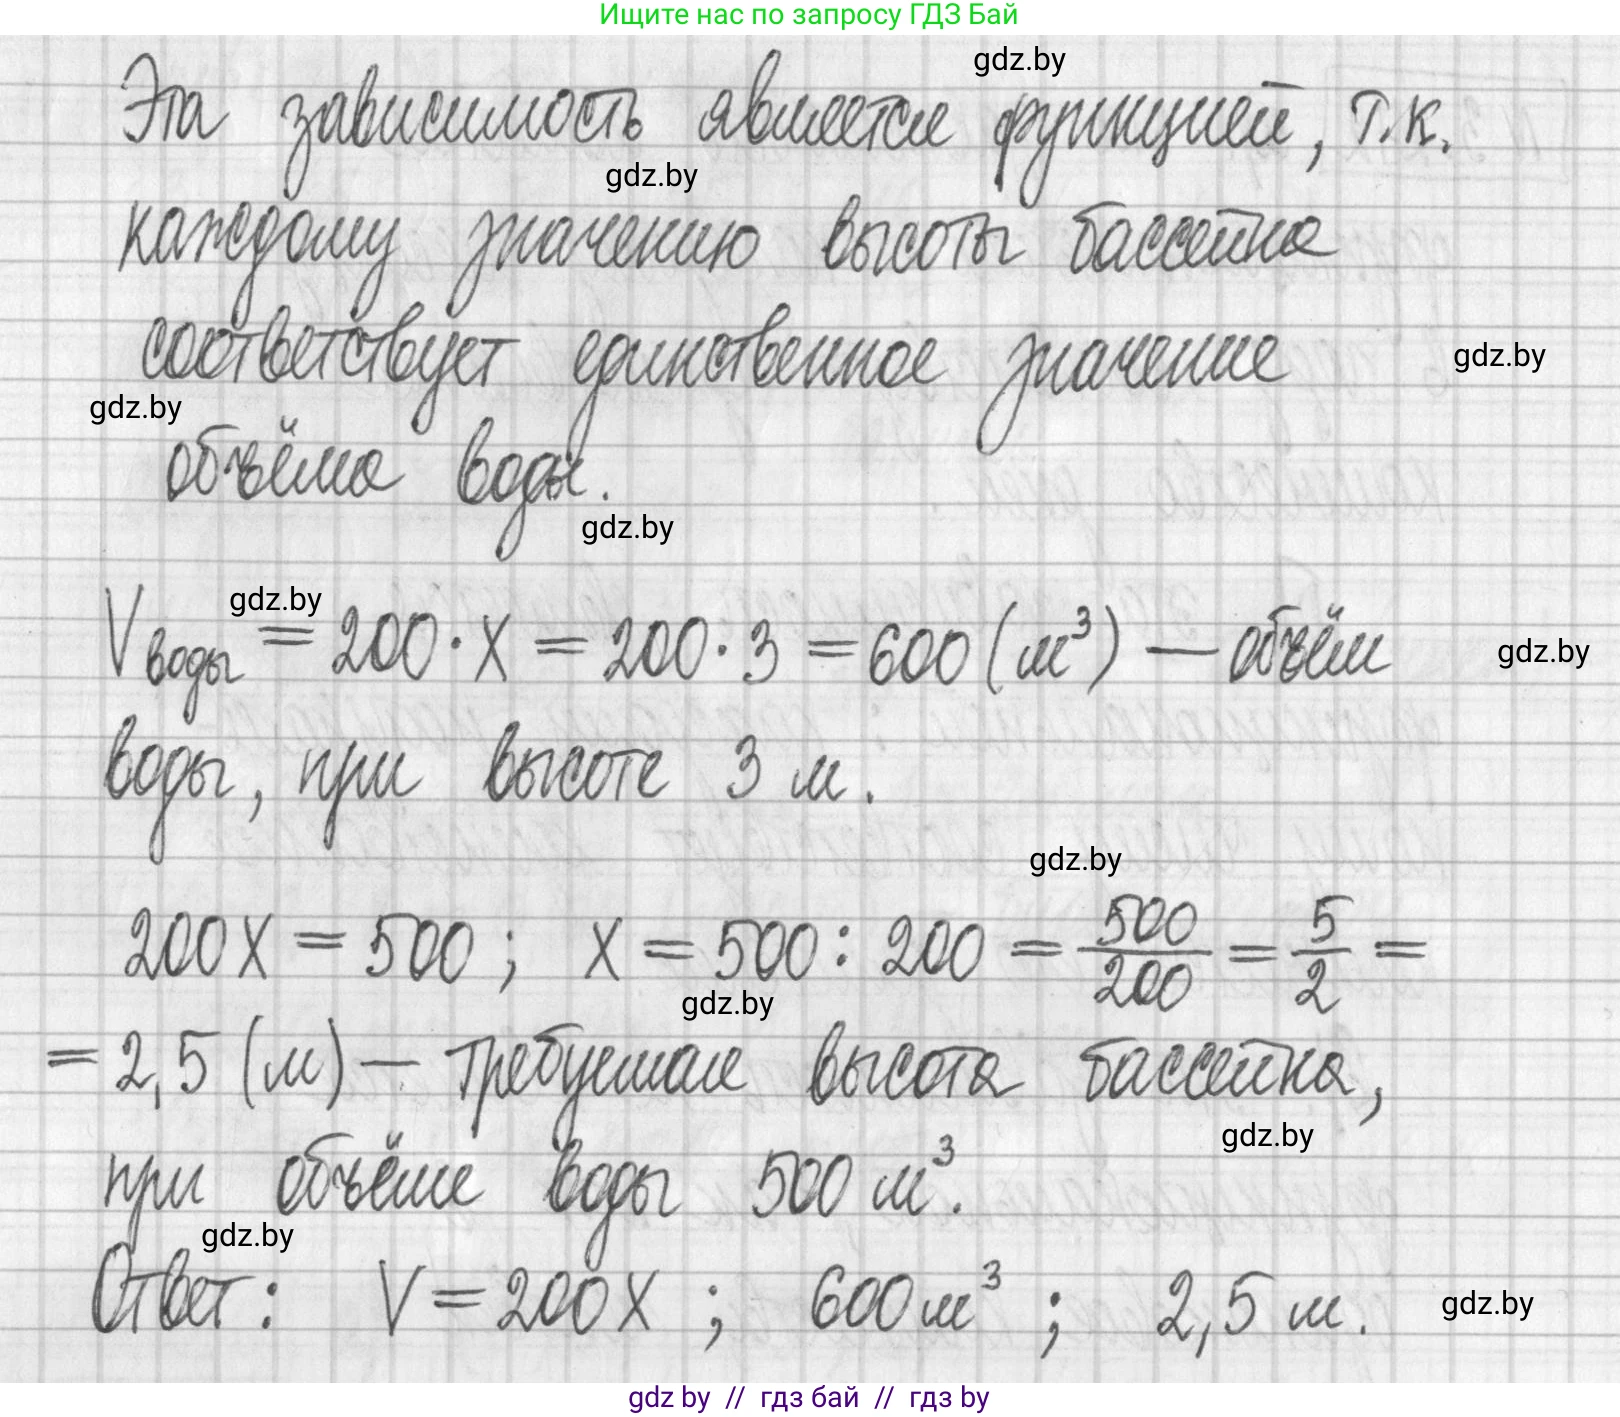 Ищите нас по запросу ГДЗ Бай
gdz.by
Эта зависимость является функцией, т.к.
gdz.by
каждому значению высоты бассейна
соответствует единственное значение
gdz.by
gdz.by
объёма воды.
gdz.by
gdz.by
Vводы = 200·x = 200·3 = 600 (м³) — объём
gdz.by
воды, при высоте 3 м.
gdz.by
200x = 500; x = 500:200 = 500/200 = 5/2 =
gdz.by
= 2,5 (м) — требуемая высота бассейна,
gdz.by
при объёме воды 500 м³.
gdz.by
Ответ: V = 200x ; 600 м³ ; 2,5 м.
gdz.by
gdz by // гдз бай // гдз by